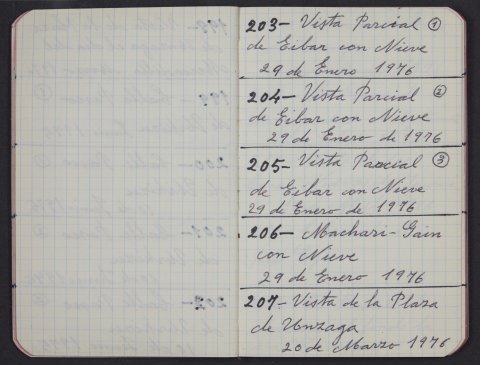 203- Vista Parcial ①
de Eibar con Nieve
29 de Enero 1976
204- Vista Parcial ②
de Eibar con Nieve
29 de Enero de 1976
205- Vista Parcial ③
de Eibar con Nieve
29 de Enero de 1976
206- Machari-Gain
con Nieve
29 de Enero 1976
207- Vista de la Plaza
de Unzaga
20 de Marzo 1976